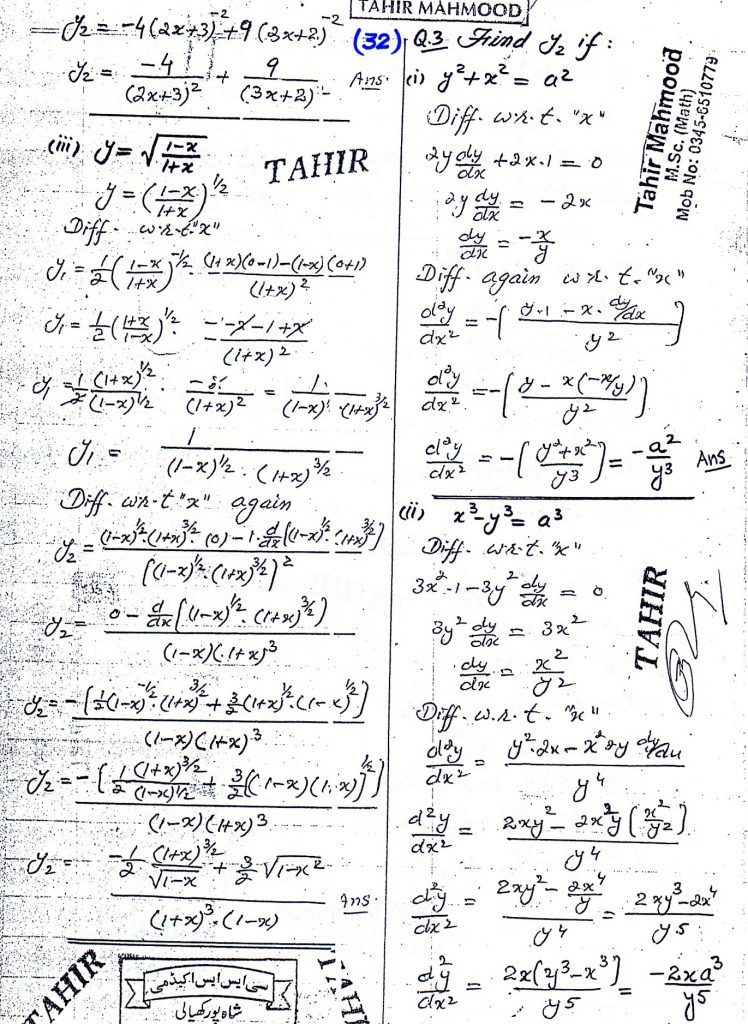 TAHIR MAHMOOD
y₂ = -4(2x+3)⁻² + 9(3x+2)⁻²
y₂ = -4/(2x+3)² + 9/(3x+2)² Ans.
(iii) y = √((1-x)/(1+x))
TAHIR
y = ((1-x)/(1+x))^½
Diff. w.r.t "x"
y₁ = ½((1-x)/(1+x))^-½ · ((1+x)(0-1)-(1-x)(0+1))/(1+x)²
y₁ = ½((1+x)/(1-x))^½ · (-1-x-1+x)/(1+x)²
y₁ = ½ (1+x)^½/(1-x)^½ · -2/(1+x)² = 1/((1-x)^½ · (1+x)^3/2)
y₁ = 1/((1-x)^½ · (1+x)^3/2)
Diff. w.r.t "x" again
y₂ = ((1-x)^½·(1+x)^3/2·(0) - 1·d/dx[(1-x)^½·(1+x)^3/2])/[(1-x)^½·(1+x)^3/2]²
y₂ = (0 - d/dx[(1-x)^½·(1+x)^3/2])/((1-x)(1+x)³)
y₂ = -[½(1-x)^-½·(1+x)^3/2 + 3/2(1+x)^½·(1-x)^½]/((1-x)(1+x)³)
y₂ = -[½ (1+x)^3/2/(1-x)^½ + 3/2[(1-x)(1+x)]^½]/((1-x)(1+x)³)
y₂ = (-½ (1+x)^3/2/√(1-x) + 3/2 √(1-x²))/((1+x)³·(1-x)) Ans.
TAHIR
سی ایس ایس اکیڈمی
شاہ پور کھیالی
TAHIR
(32) Q.3 Find y₂ if :
(i) y²+x² = a²
Diff. w.r.t. "x"
2y dy/dx + 2x·1 = 0
2y dy/dx = -2x
dy/dx = -x/y
Diff. again w.r.t. "x"
d²y/dx² = -[(y·1 - x·dy/dx)/y²]
d²y/dx² = -[(y - x(-x/y))/y²]
d²y/dx² = -[(y²+x²)/y³] = -a²/y³ Ans
Tahir Mahmood
M.Sc. (Math)
Mob No: 0345-6510779
(ii) x³-y³ = a³
Diff. w.r.t. "x"
3x²·1 - 3y² dy/dx = 0
3y² dy/dx = 3x²
dy/dx = x²/y²
TAHIR
Diff. w.r.t. "x"
d²y/dx² = (y²·2x - x²·2y dy/dx)/y⁴
d²y/dx² = (2xy² - 2x²y(x²/y²))/y⁴
d²y/dx² = (2xy² - 2x⁴/y)/y⁴ = (2xy³-2x⁴)/y⁵
d²y/dx² = 2x(y³-x³)/y⁵ = -2xa³/y⁵